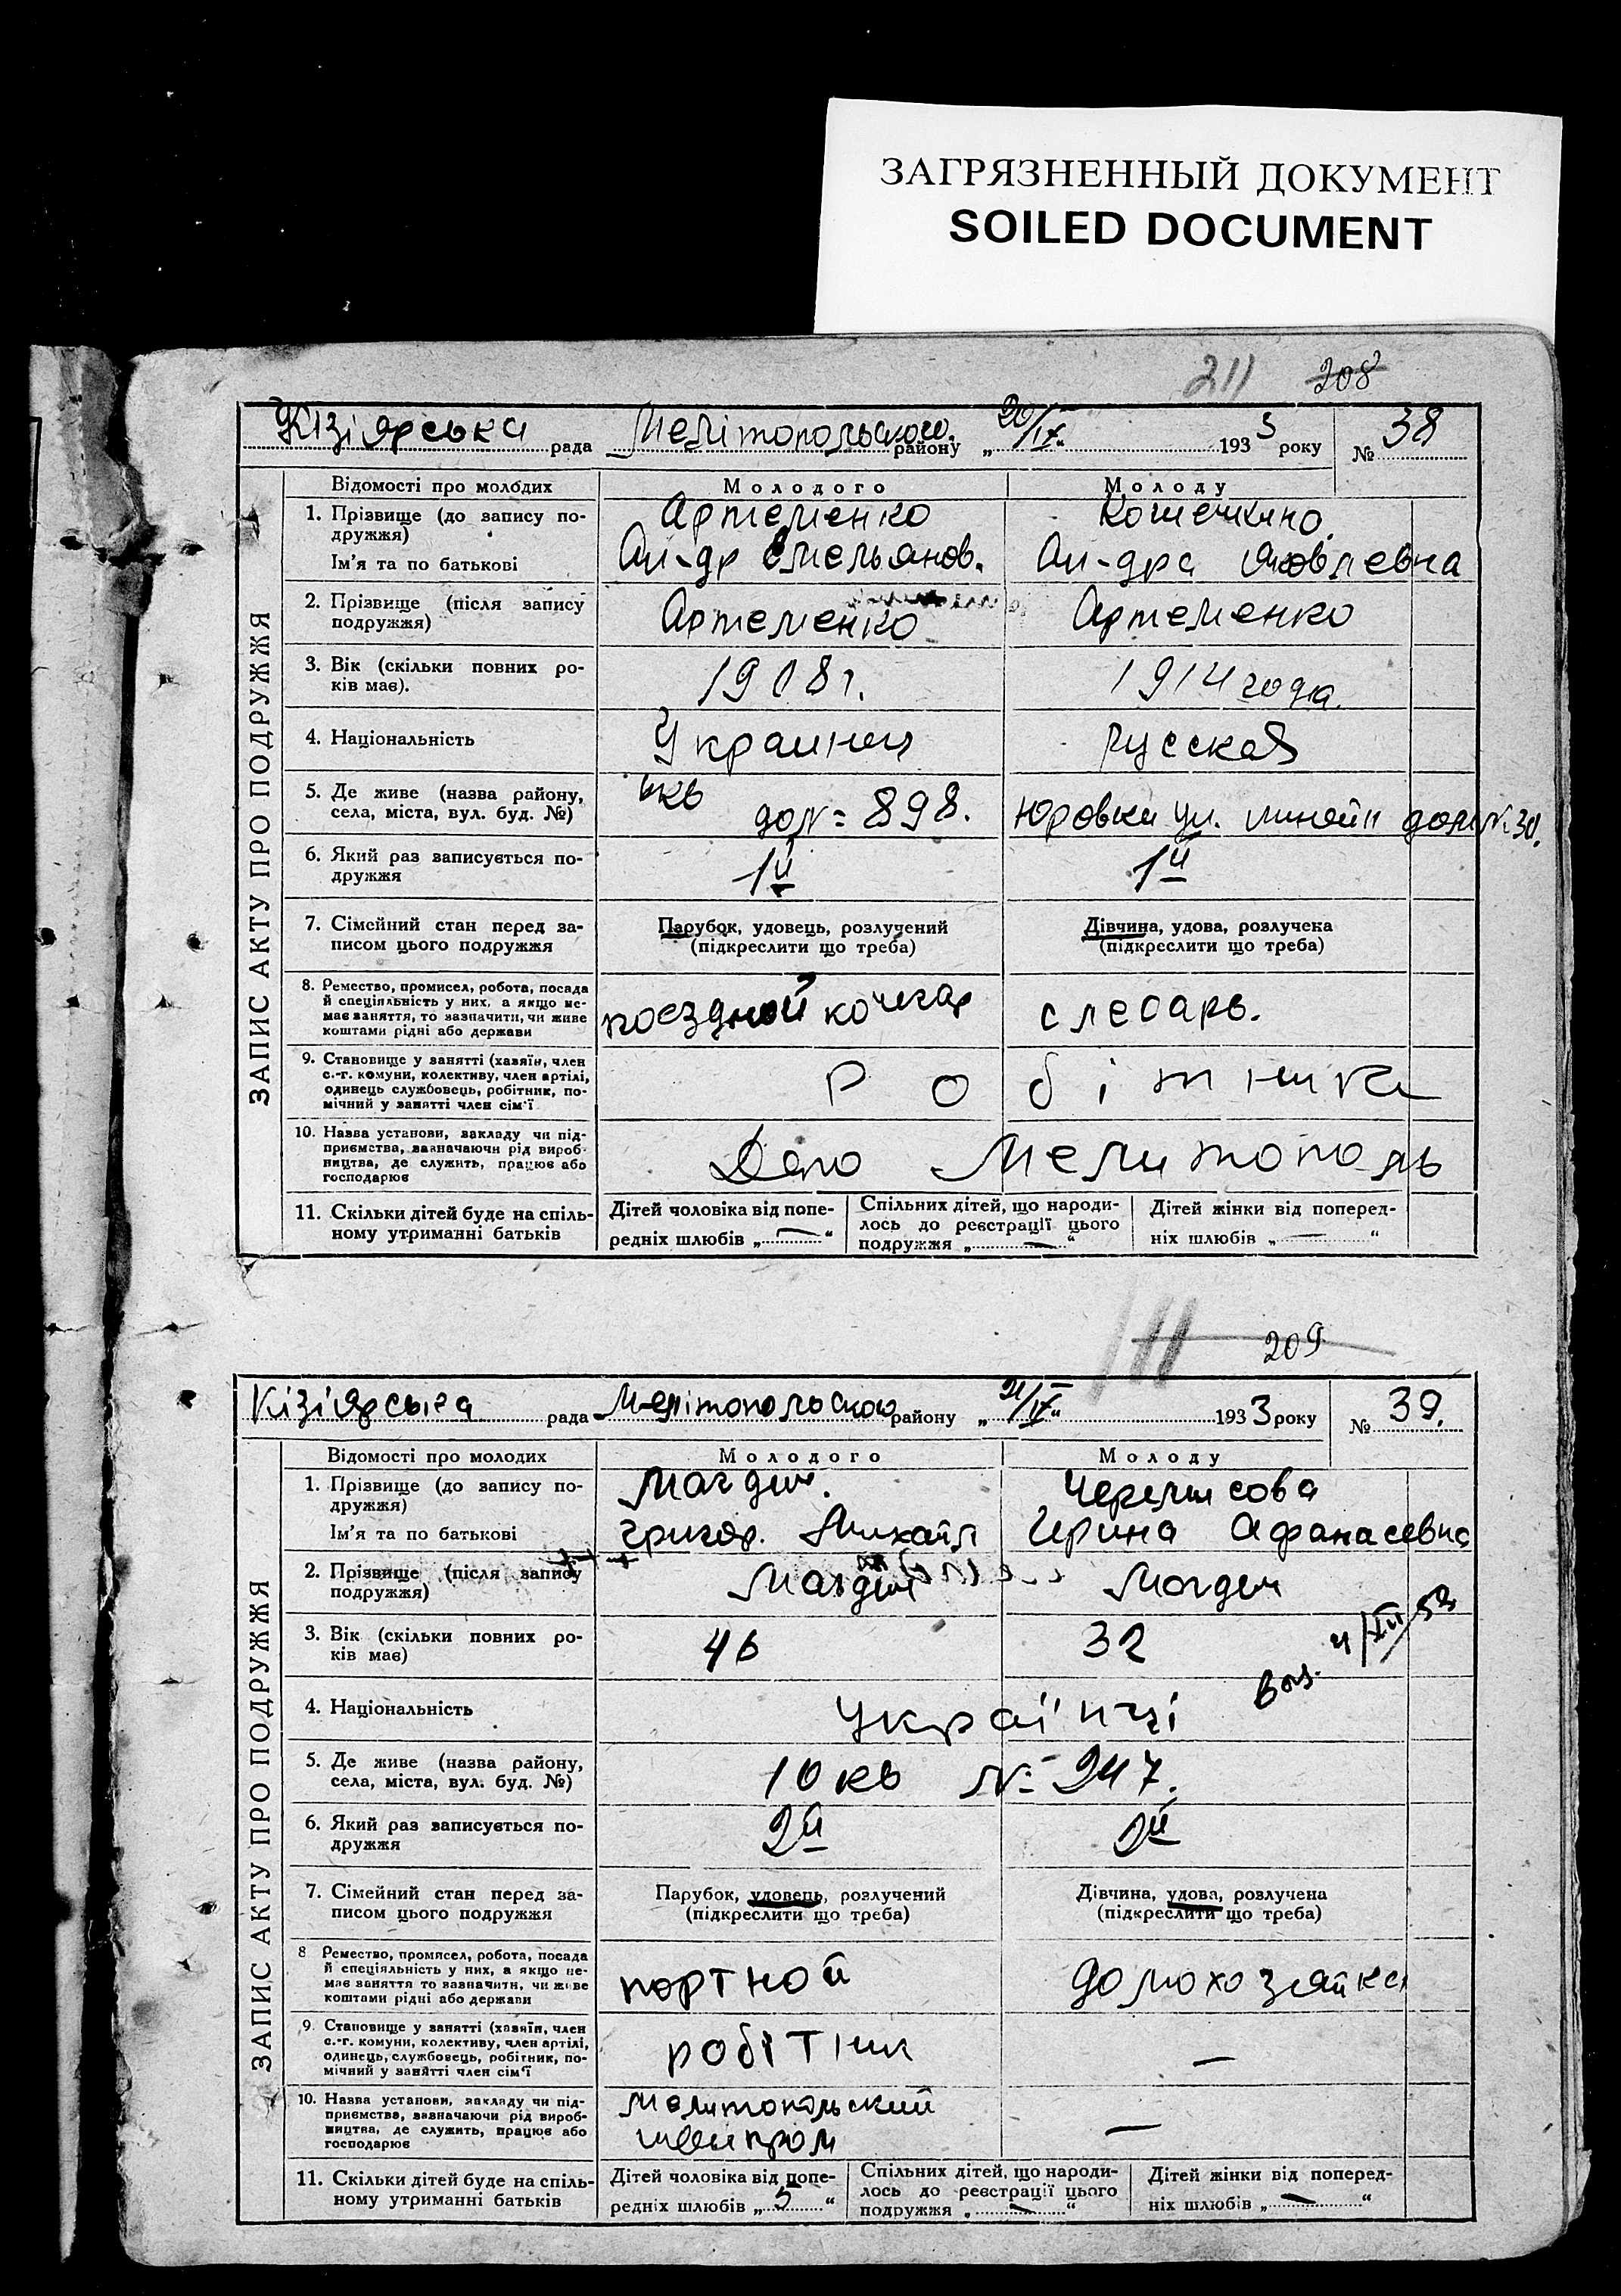 ЗАГРЯЗНЕННЫЙ ДОКУМЕНТ
SOILED DOCUMENT
211 208
Кізіярська рада Мелітопольського району „20/IX“ 1933 року № 38
ЗАПИС АКТУ ПРО ПОДРУЖЖЯ
Відомості про молодих Молодого Молоду
1. Прізвище (до запису подружжя) Артеменко
Ім'я та по батькові Ал-др Емельянов. Ал-дра Яковлевна
2. Прізвище (після запису подружжя) Артеменко Артеменко
3. Вік (скільки повних років має). 1908 г. 1914 года.
4. Національність Украинец Русская
5. Де живе (назва району, села, міста, вул. буд. №) кв до № 898. Юровка ул. линейн дом № 30.
6. Який раз записується подружжя 1й 1й
7. Сімейний стан перед записом цього подружжя Парубок, удовець, розлучений Дівчина, удова, розлучена
(підкреслити що треба) (підкреслити що треба)
8. Ремество, промисел, робота, посада
й спеціяльність у них, а якщо немає заняття, то зазначити, чи живе
коштами рідні або держави
поездной кочегар слесарь.
9. Становище у занятті (хазяїн, член
с.-г. комуни, колективу, член артілі,
одинець службовець, робітник, помічний у занятті член сім'ї
Робітники
10. Назва установи, закладу чи підприємства, зазначаючи рід виробництва, де служить, працює або
господарює
Депо Мелитополь
11. Скільки дітей буде на спільному утриманні батьків
Дітей чоловіка від попередніх шлюбів „—“
Спільних дітей, що народилось до реєстрації цього подружжя „—“
Дітей жінки від попередніх шлюбів „—“
209
Кізіярська рада Мелітопольського району „21/IX“ 1933 року № 39.
ЗАПИС АКТУ ПРО ПОДРУЖЖЯ
Відомості про молодих Молодого Молоду
1. Прізвище (до запису подружжя) Черемисова
Ім'я та по батькові Григор. Михайл Ирина Афанасевна
2. Прізвище (після запису подружжя)
3. Вік (скільки повних років має) 46 32
4/XII/53
4. Національність Українці
5. Де живе (назва району, села, міста, вул. буд. №) 10 кв № 247.
6. Який раз записується подружжя 2й 2й
7. Сімейний стан перед записом цього подружжя Парубок, удовець, розлучений Дівчина, удова, розлучена
(підкреслити що треба) (підкреслити що треба)
8 Ремество, промисел, робота, посада
й спеціяльність у них, а якщо немає заняття то зазначити, чи живе
коштами рідні або держави
портной домохозяйка
9. Становище у занятті (хазяїн, член
с.-г. комуни, колективу, член артілі,
одинець, службовець, робітник, помічний у занятті член сім'ї
робітник —
10. Назва установи, закладу чи підприємства, зазначаючи рід виробництва, де служить, працює або
господарює
Мелитопольский —
швейпром
11. Скільки дітей буде на спільному утриманні батьків
Дітей чоловіка від попередніх шлюбів „5“
Спільних дітей, що народилось до реєстрації цього подружжя „—“
Дітей жінки від попередніх шлюбів „—“